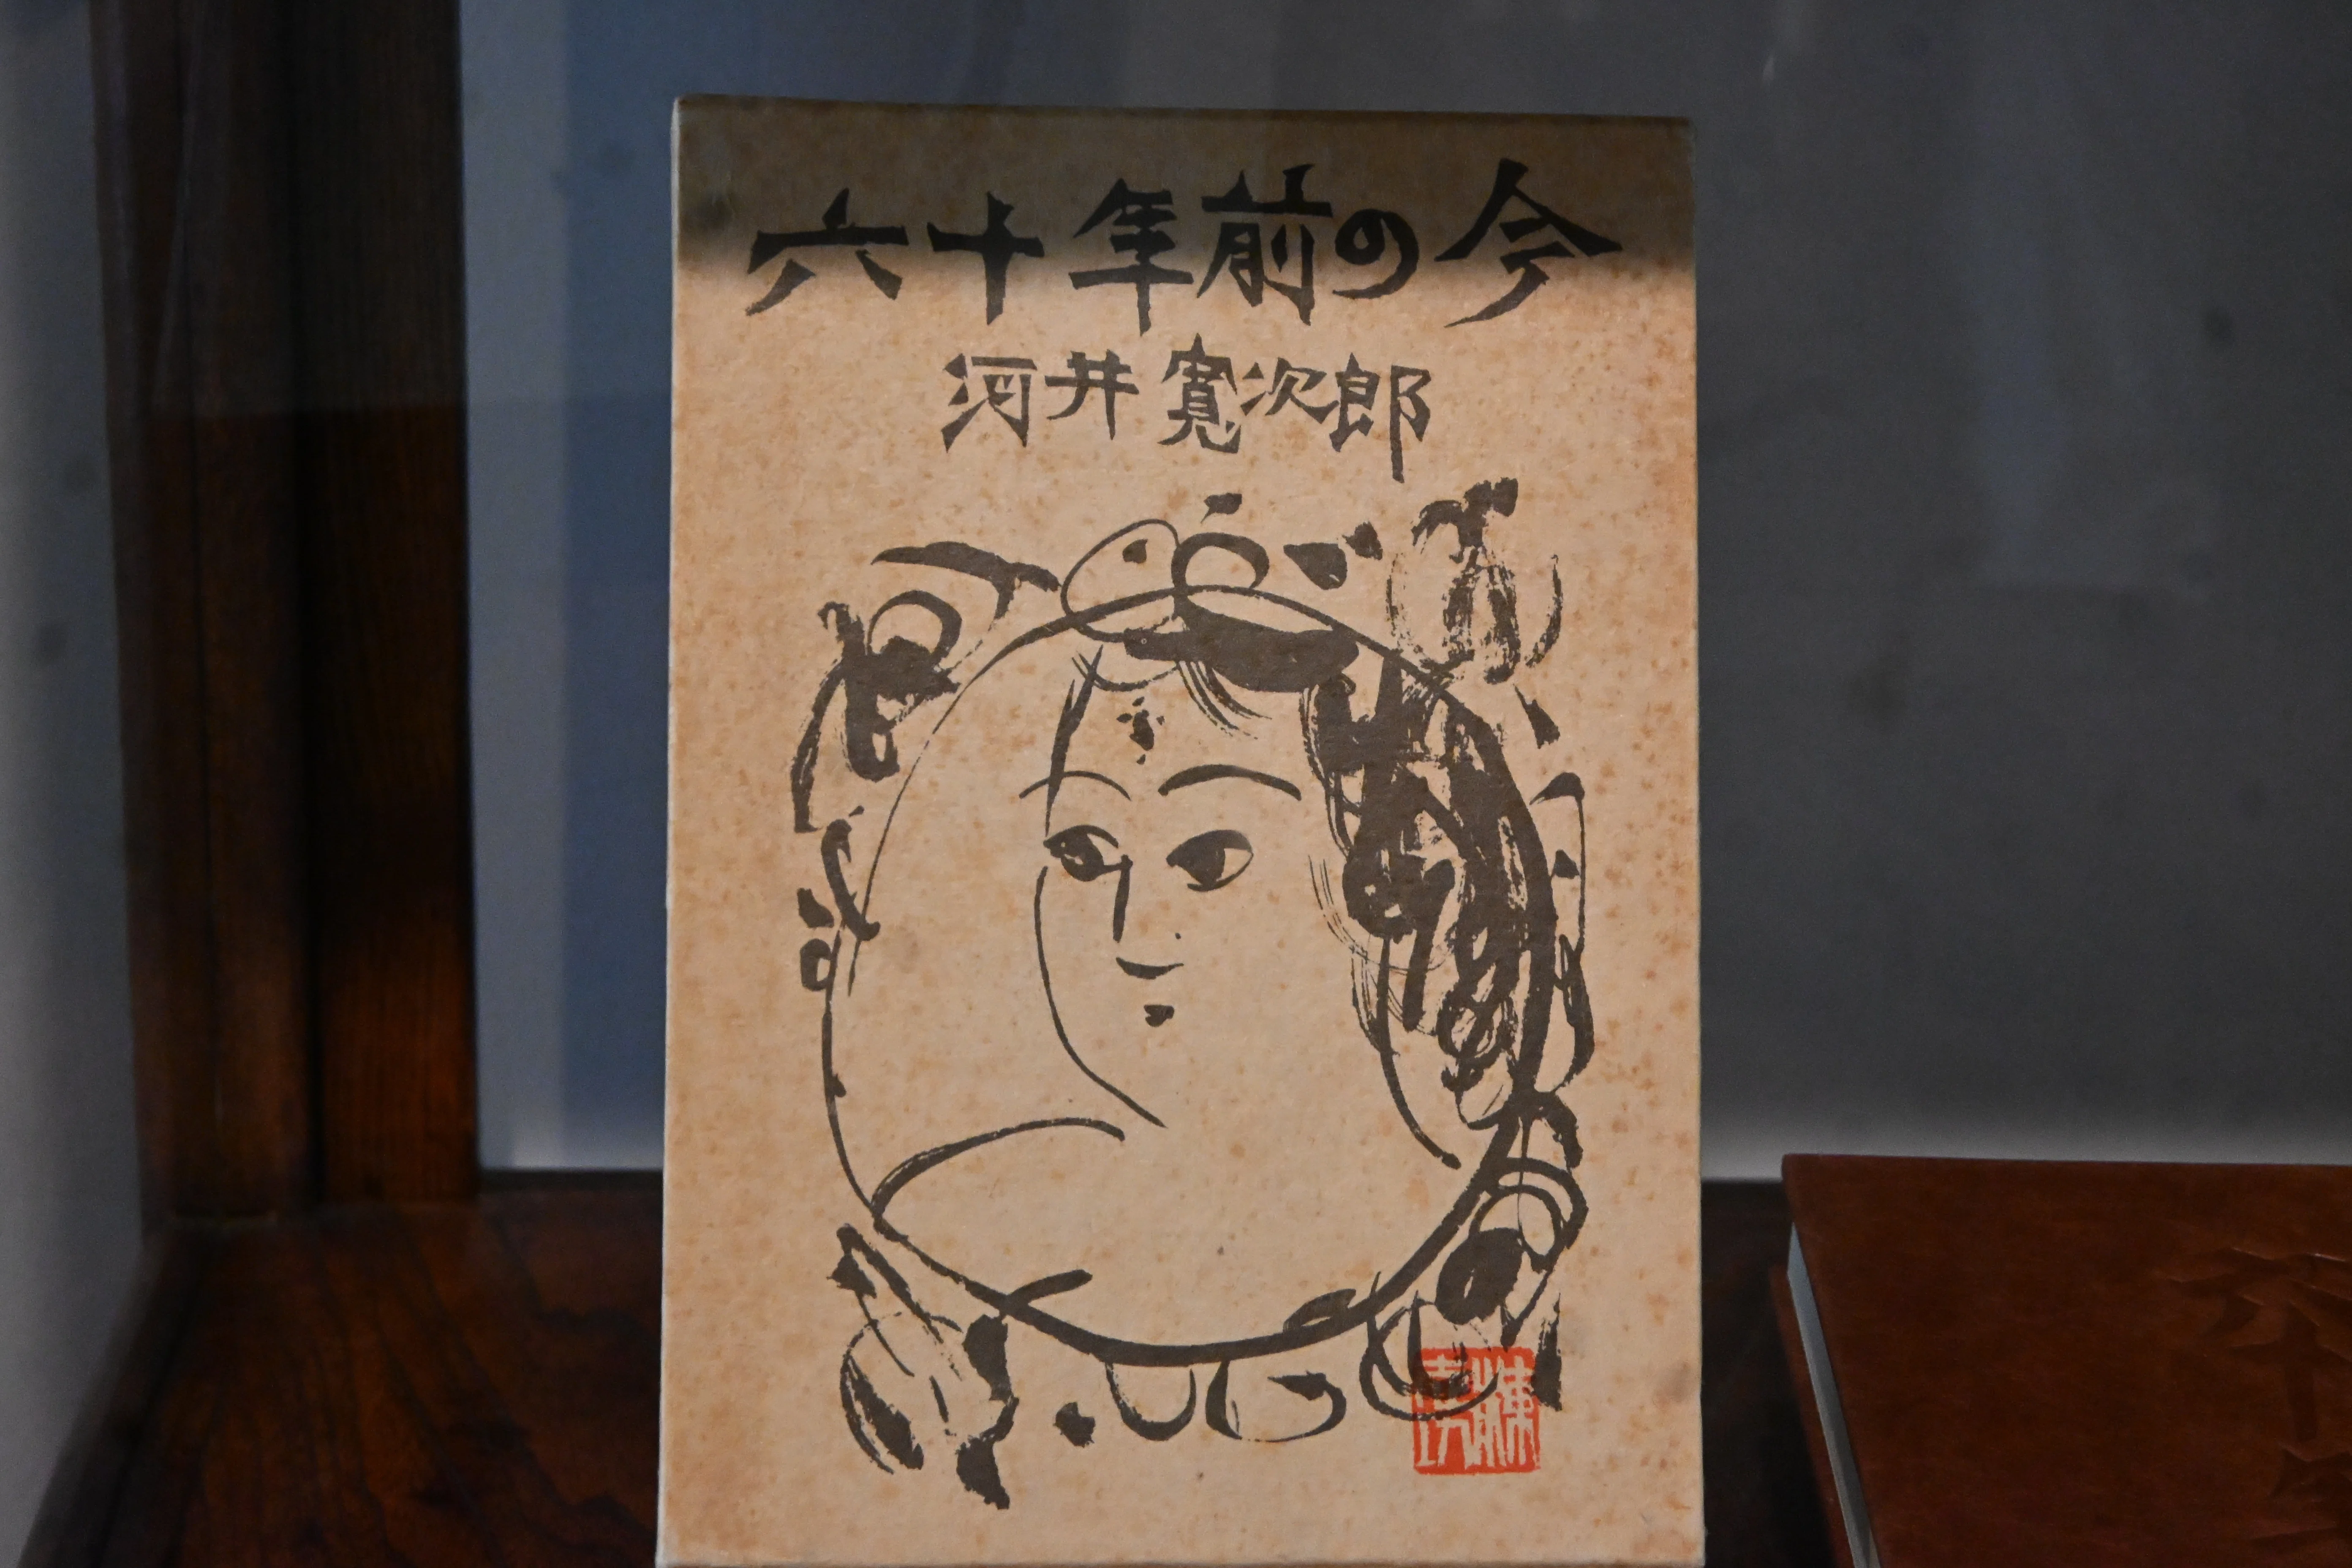 六十年前の今
河井寬次郎